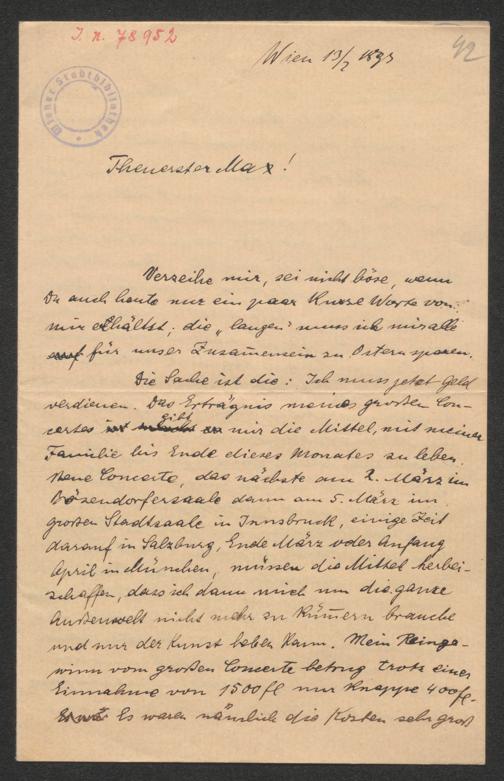 I. N. 78952
Wien 13/2 1893
42
Wiener Stadtbibliothek
Theuerster Max!
Verzeihe mir, sei nicht böse, wenn
Du auch heute nur ein paar kurze Worte von
mir erhältst; die „langen“ muss ich mir alle
auf für unser Zusammensein zu Ostern sparen.
Die Sache ist die: Ich muss jetzt Geld
verdienen. Das Erträgnis meines großen Con-
certes gibt mir die Mittel, mit meiner
Familie bis Ende dieses Monates zu leben.
Neue Concerte, das nächste am 2. März im
Bösendorfersaale dann am 5. März im
großen Stadtsaale in Innsbruck, einige Zeit
darauf in Salzburg, Ende März oder Anfang
April in München, müssen die Mittel herbei-
schaffen, dass ich dann mich um die ganze
Außenwelt nicht mehr zu kümmern brauche
und nur der Kunst leben kann. Mein Reinge-
winn vom großen Concerte betrug trotz einer
Einnahme von 1500 fl nur knappe 400 fl.
Es waren nämlich die Kosten sehr groß